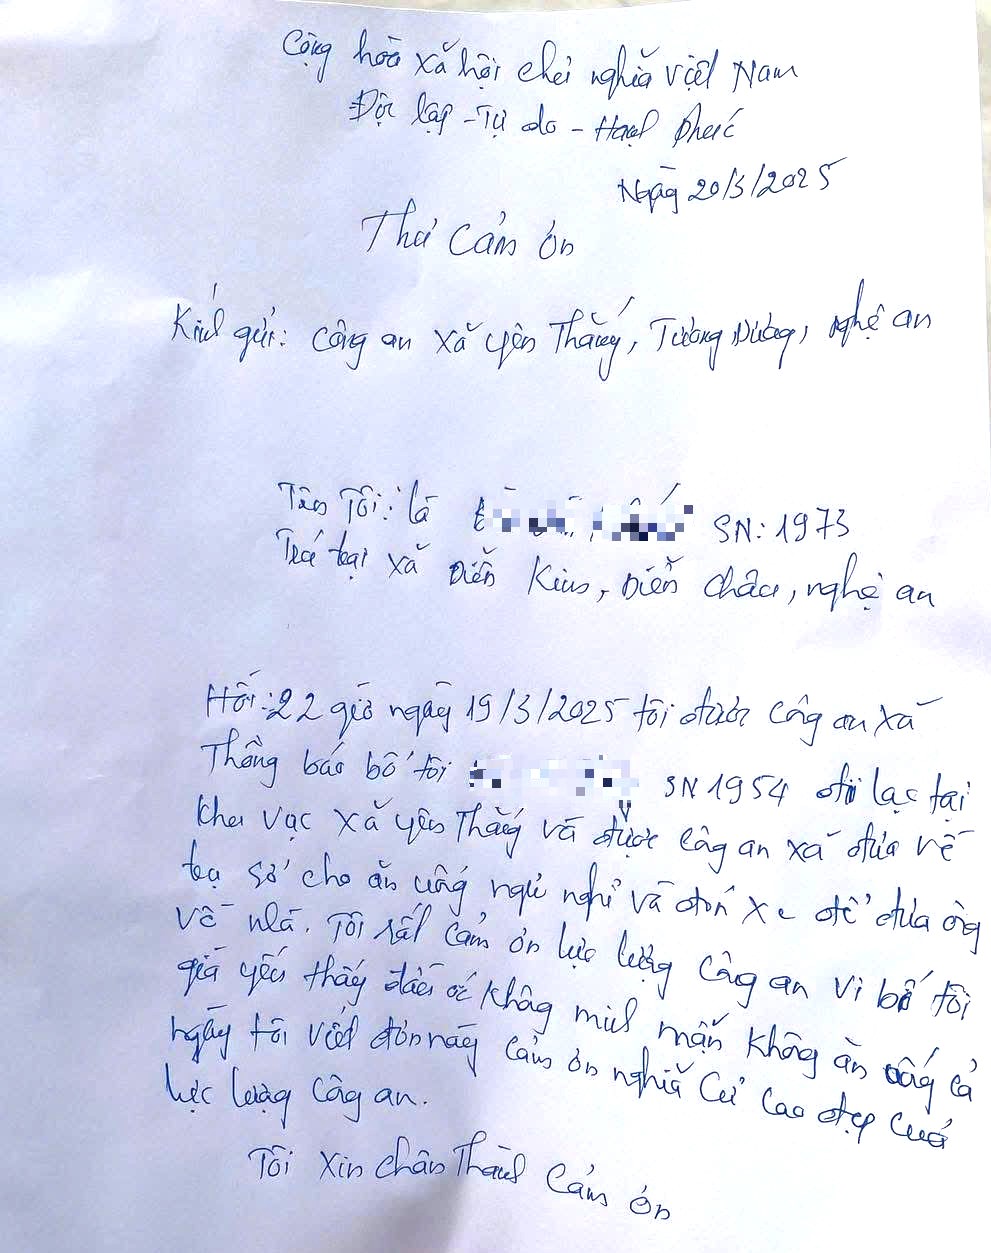 Cộng hòa xã hội chủ nghĩa việt Nam
Độc lập - Tự do - Hạnh Phúc
Ngày 20/3/2025
Thư cảm ơn
Kính gửi: Công an xã yên Thắng, Tương Dương, nghệ an
Tên Tôi: là SN: 1973
Trú tại xã Diễn Kim, Diễn Châu, nghệ an
Hồi: 22 giờ ngày 19/3/2025 tôi được công an xã
Thông báo bố tôi SN 1954 đi lạc tại
khu vực xã yên Thắng và được công an xã đưa về
trụ sở cho ăn uống ngủ nghỉ và đón xe để đưa ông
về nhà. Tôi rất cảm ơn lực lượng công an vì bố tôi
già yếu thấy đầu óc không minh mẫn không ăn uống cả
ngày tôi viết đơn này cảm ơn nghĩa cử cao đẹp của
lực lượng công an.
Tôi xin chân Thành cảm ơn